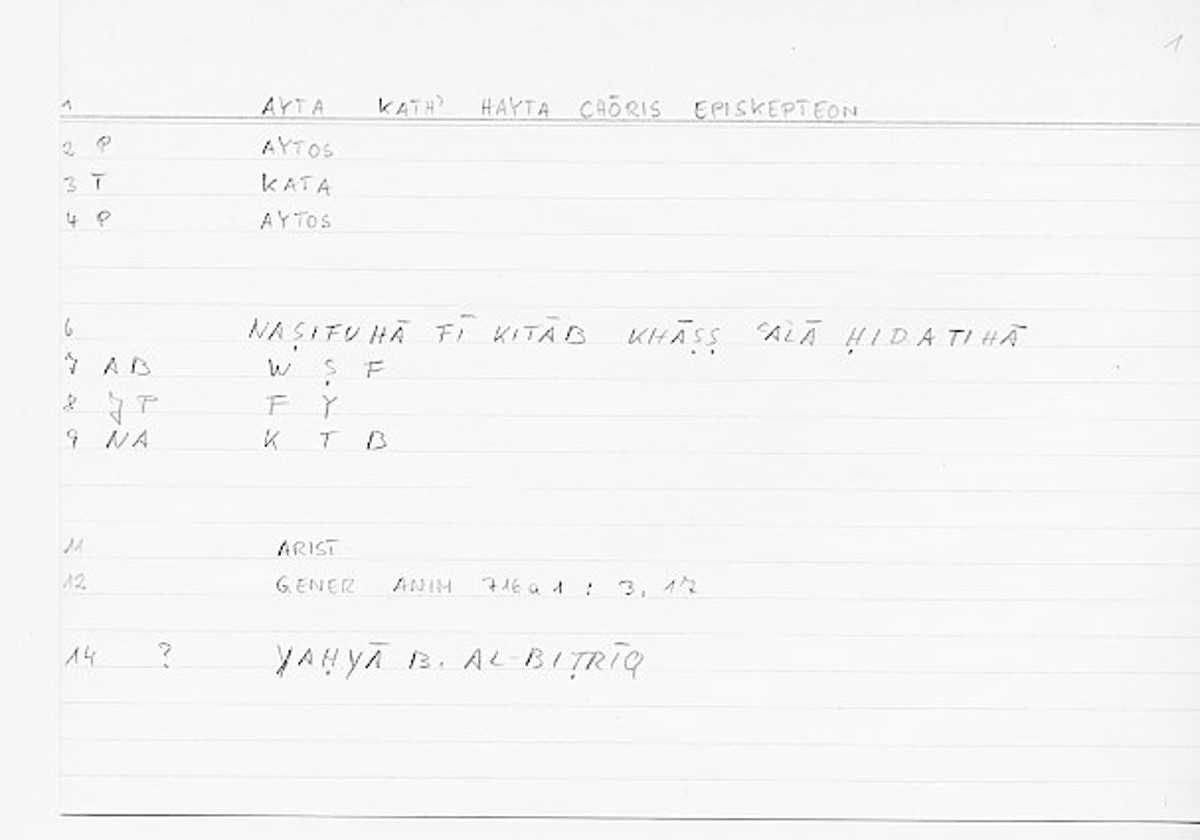 1
1 AYTA KATH' HAYTA CHŌRIS EPISKEPTEON
2 P AYTOS
3 T KATA
4 P AYTOS
6 NAṢIFUHĀ FĪ KITĀB KHĀṢṢ ʿALĀ ḤIDATIHĀ
7 AB W Ṣ F
8 JP F Y
9 NA K T B
11 ARIST
12 GENER ANIM 716a1 : 3, 17
14 ? YAḤYĀ B. AL-BIṬRĪQ